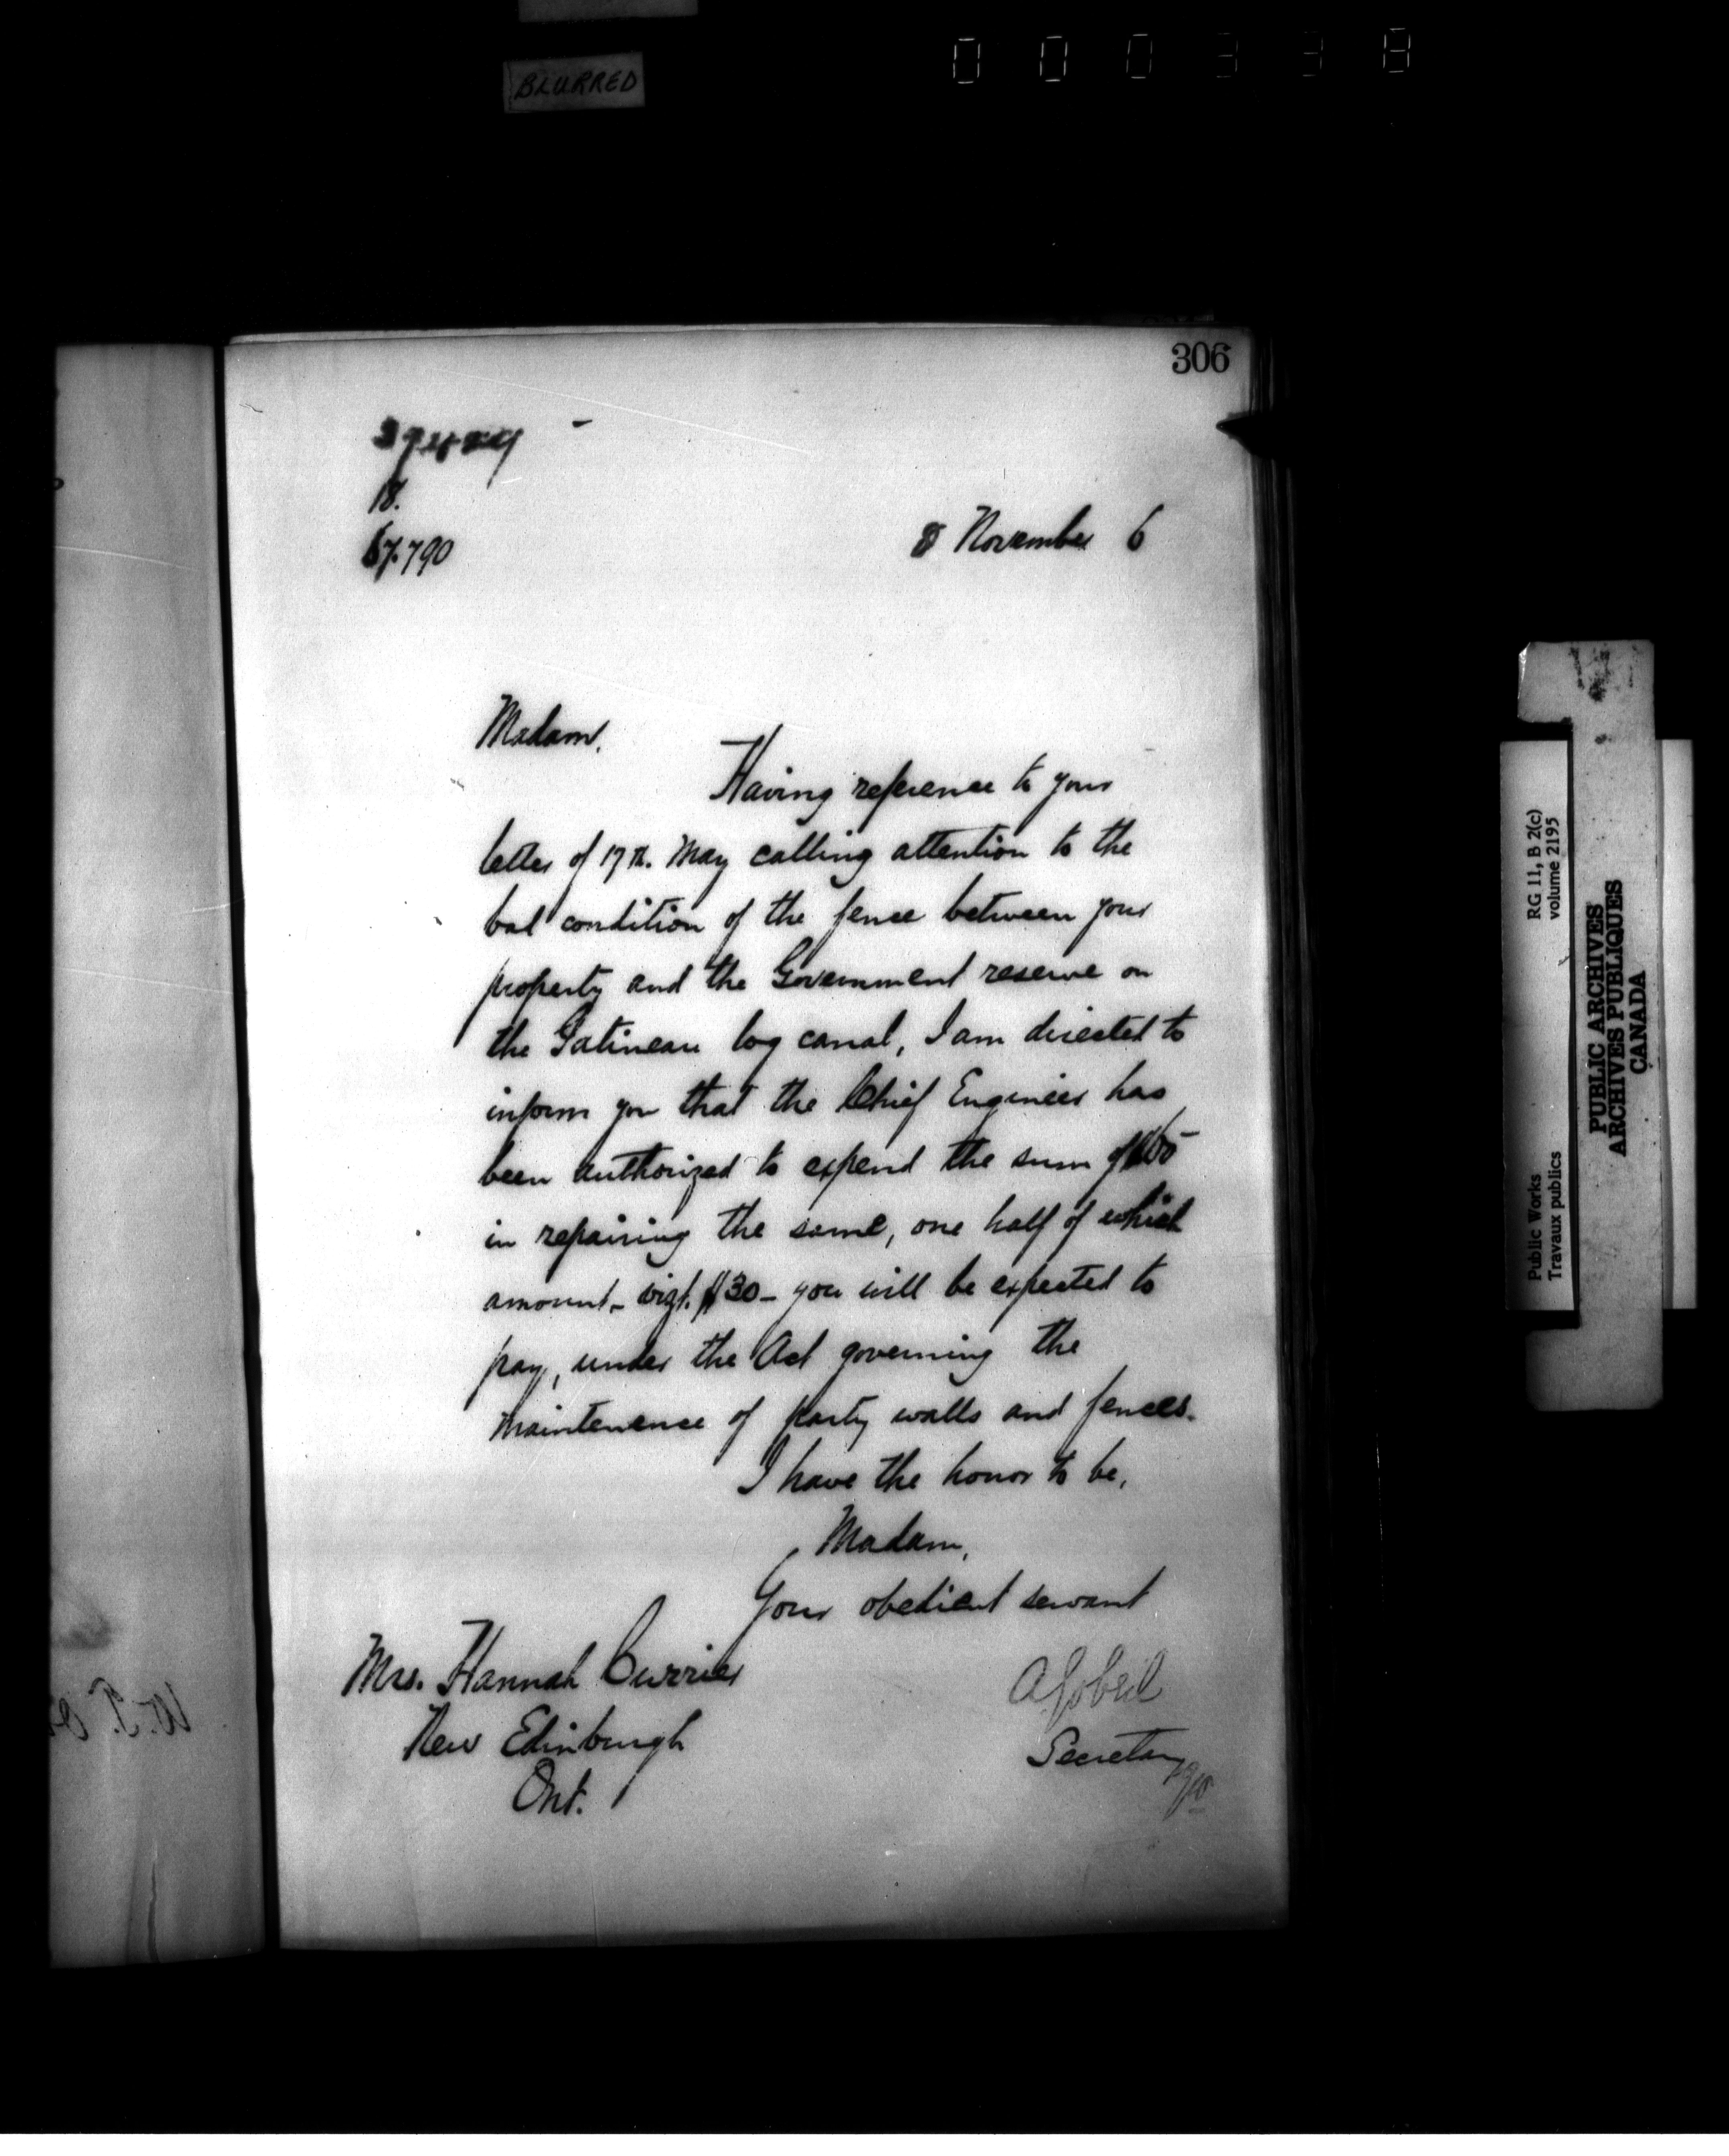 BLURRED
000338
306
18.
67.790
8 November 6
Madam,
Having reference to your
letter of 17th. May calling attention to the
bad condition of the fence between your
property and the Government reserve on
the Gatineau log canal, I am directed to
inform you that the Chief Engineer has
been authorized to expend the sum of $60
in repairing the same, one half of which
amount - vizt. $30 - you will be expected to
pay, under the Act governing the
maintenence of party walls and fences.
I have the honor to be,
Madam,
Your obedient servant
Mrs. Hannah Currier
New Edinburgh
Ont.
A Gobeil
Secretary
RG 11, B 2(c)
volume 2195
Public Works
Travaux publics
PUBLIC ARCHIVES
ARCHIVES PUBLIQUES
CANADA